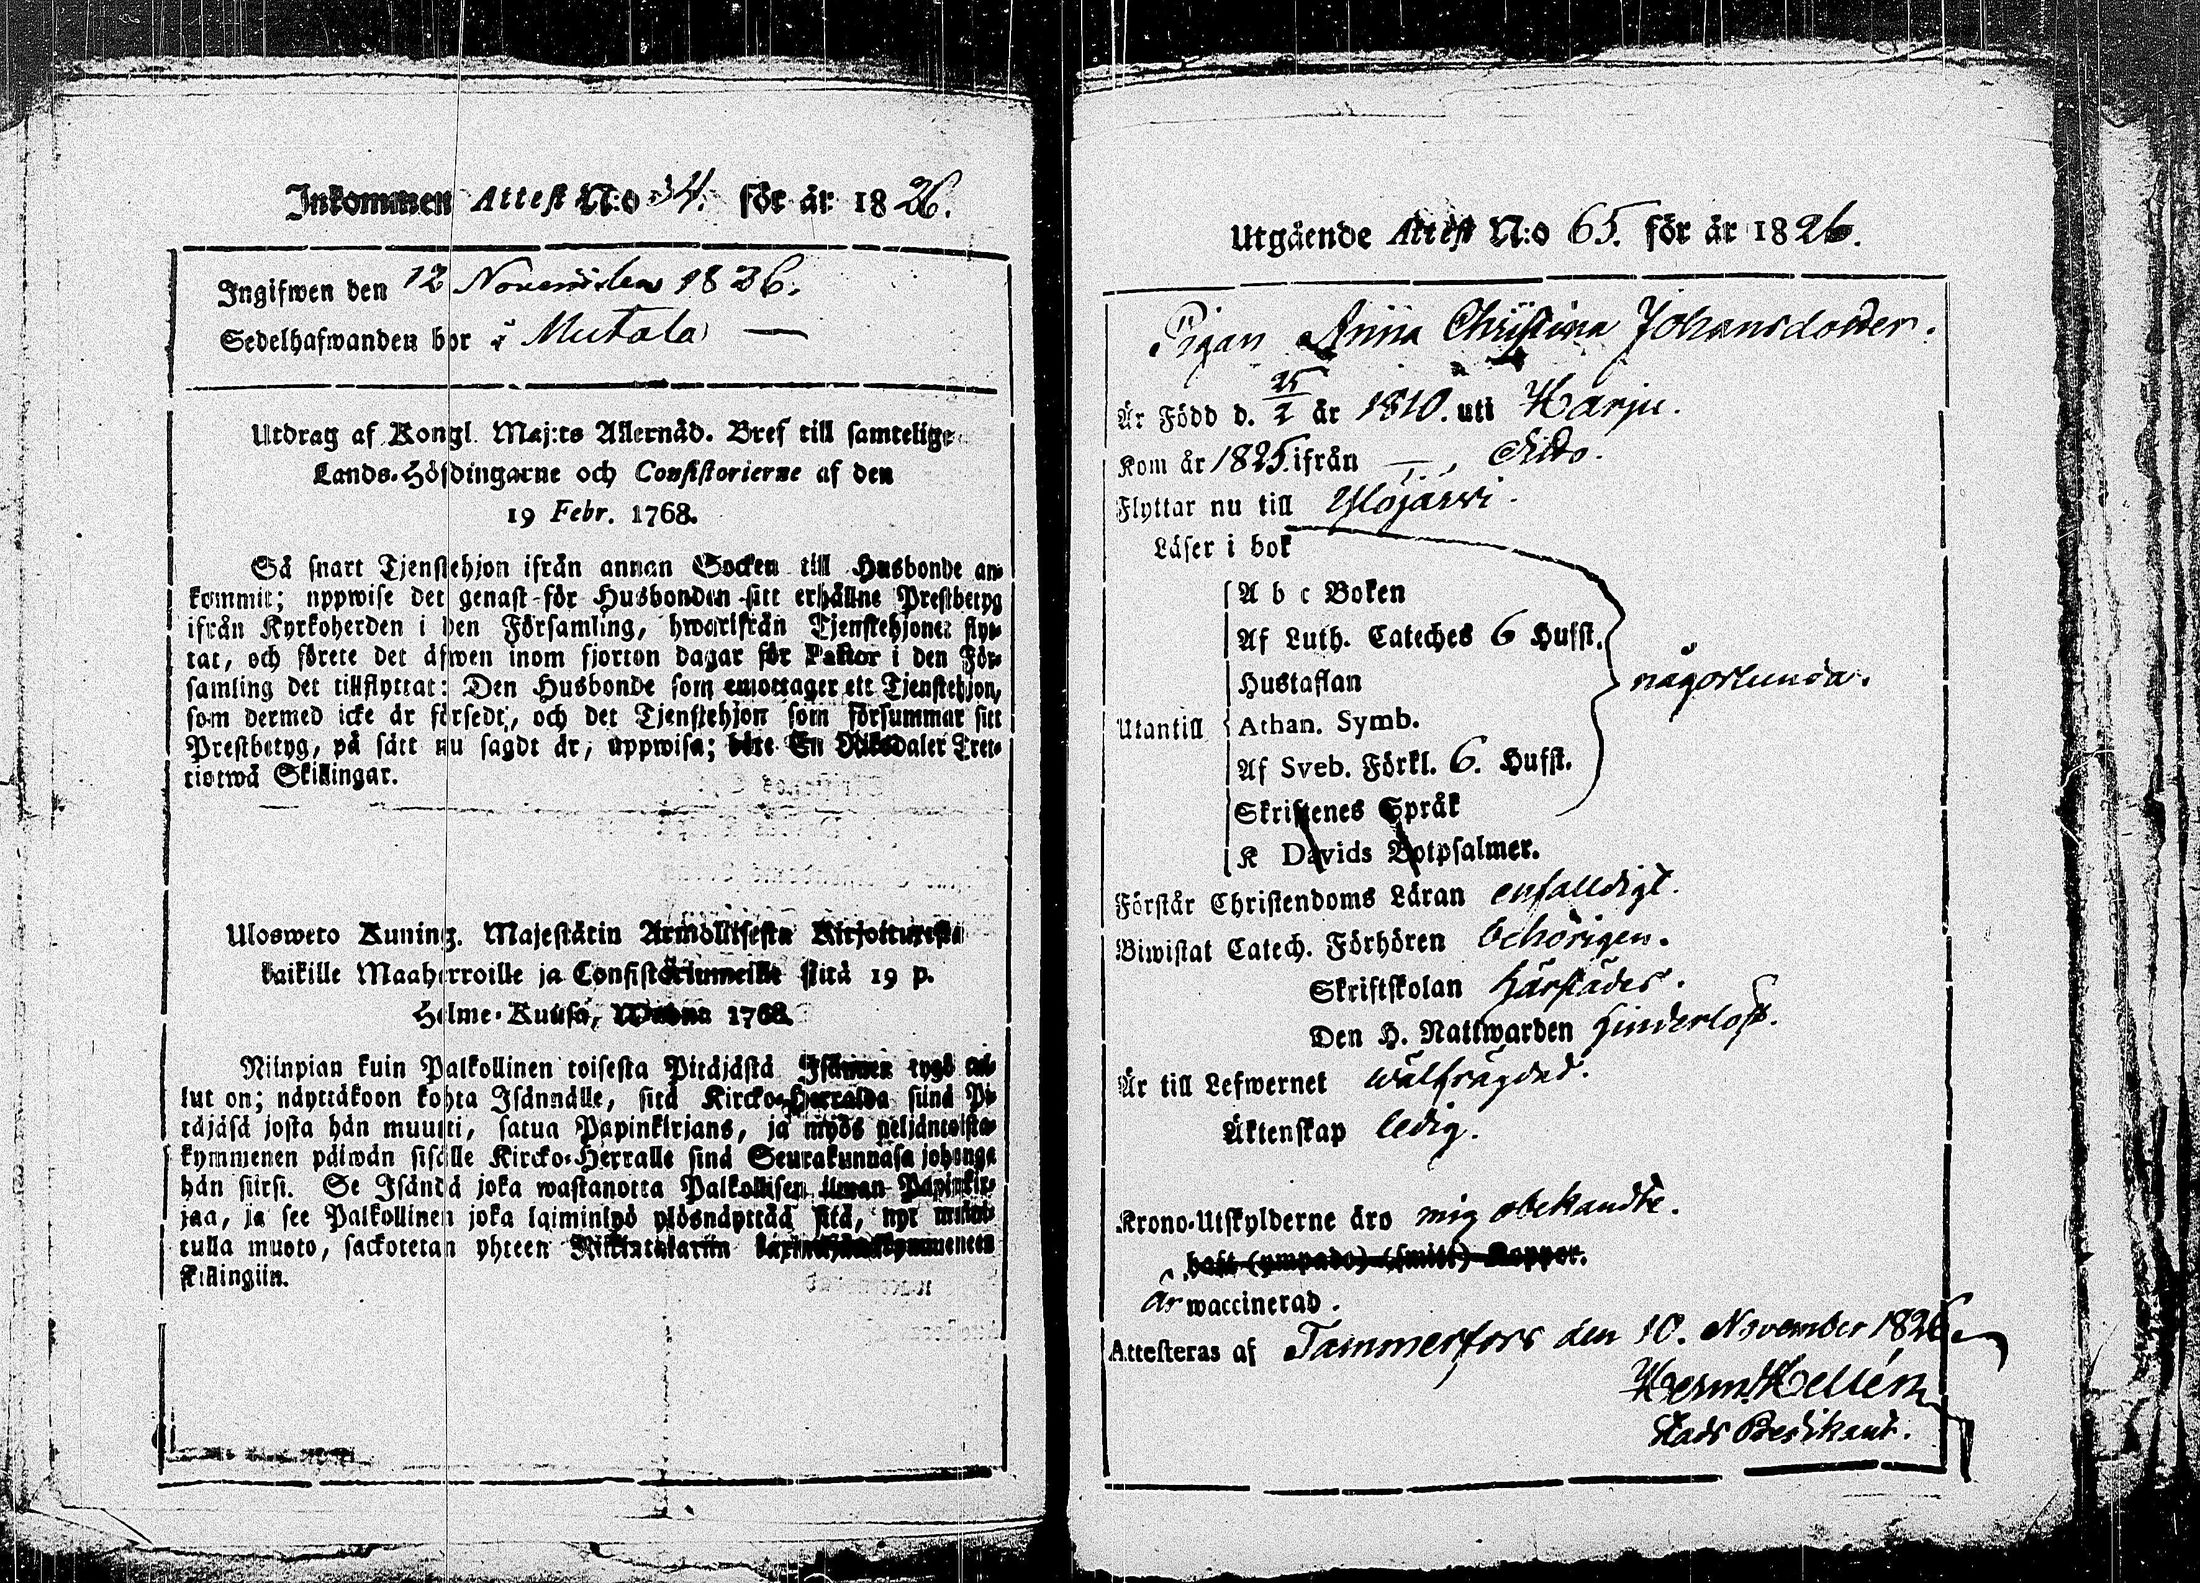 Inkommen Attest N:o 34. för år 1826.
Ingifwen den 12 November 1826.
Sedelhafwanden bor i Mutala —
Utdrag af Kongl. Maj:ts Allernåd. Bref till samtelige
Lands-Höfdingarne och Consistorierne af den
19 Febr. 1768.
Så snart Tjenstehjon ifrån annan Socken till Husbonde an-
kommit; uppwise det genast för Husbonden sitt erhållne Prestbetyg
ifrån Kyrkoherden i den Församling, hwarifrån Tjenstehjonet flyt-
tat, och förete det äfwen inom fjorton dagar för Pastor i den För-
samling det tillflyttat: Den Husbonde som emottager ett Tjenstehjon,
som dermed icke är försedt, och det Tjenstehjon som försummar sitt
Prestbetyg, på sätt nu sagdt är, uppwisa; böte En Riksdaler Tret-
tiotwå Skillingar.
Ulosweto Kuning. Majestätin Armollisesta Kirjoituresta
kaikille Maaherroille ja Consistoriumeille siitä 19 p.
Helme-Kuusa, Wuona 1768.
Niinpian kuin Palkollinen toisesta Pitäjästä Isännen tygö tul-
lut on; näyttäkoon kohta Isännälle, sitä Kircko-Herralda siinä Pi-
täjäsä josta hän muutti, satua Papinkirjans, ja myös neljäntoista-
kymmenen päiwän sisälle Kircko-Herralle siinä Seurakunnasa johonga
hän siirsi. Se Isändä joka wastanotta Palkollisen ilman Papinkir-
jaa, ja see Palkollinen joka laiminlyö ylösnäyttää sitä, nyt
tulla muoto, sackotetan yhteen Rikintalariin
skillingiin.
Utgående Attest N:o 65. för år 1826.
Pigan Anna Christina Johansdotter.
Är Född d. 25/2 år 1810. uti Harju.
Kom år 1825. ifrån — , dito.
Flyttar nu till Ylöjärvi.
Läser i bok
A b c Boken
Af Luth. Cateches 6 Hufst.
Hustaflan
någorlunda.
Utantill Athan. Symb.
Af Sveb. Förkl. 6. Hufst.
Skriftenes Språk
K Davids Botpsalmer.
Förstår Christendoms Läran enfalldigt.
Biwistat Catech. Förhören behörigen.
Skriftskolan härstädes.
Den H. Nattwarden hinderlöst.
Är till Lefwernet wälfrägdad.
Äktenskap ledig.
Krono-Utskylderne äro mig obekandte.
haft (ympade) (smitt) Koppor.
är waccinerad.
Attesteras af Tammerfors den 10. November 1826.
Herm. Hellén
Stads Predikant.